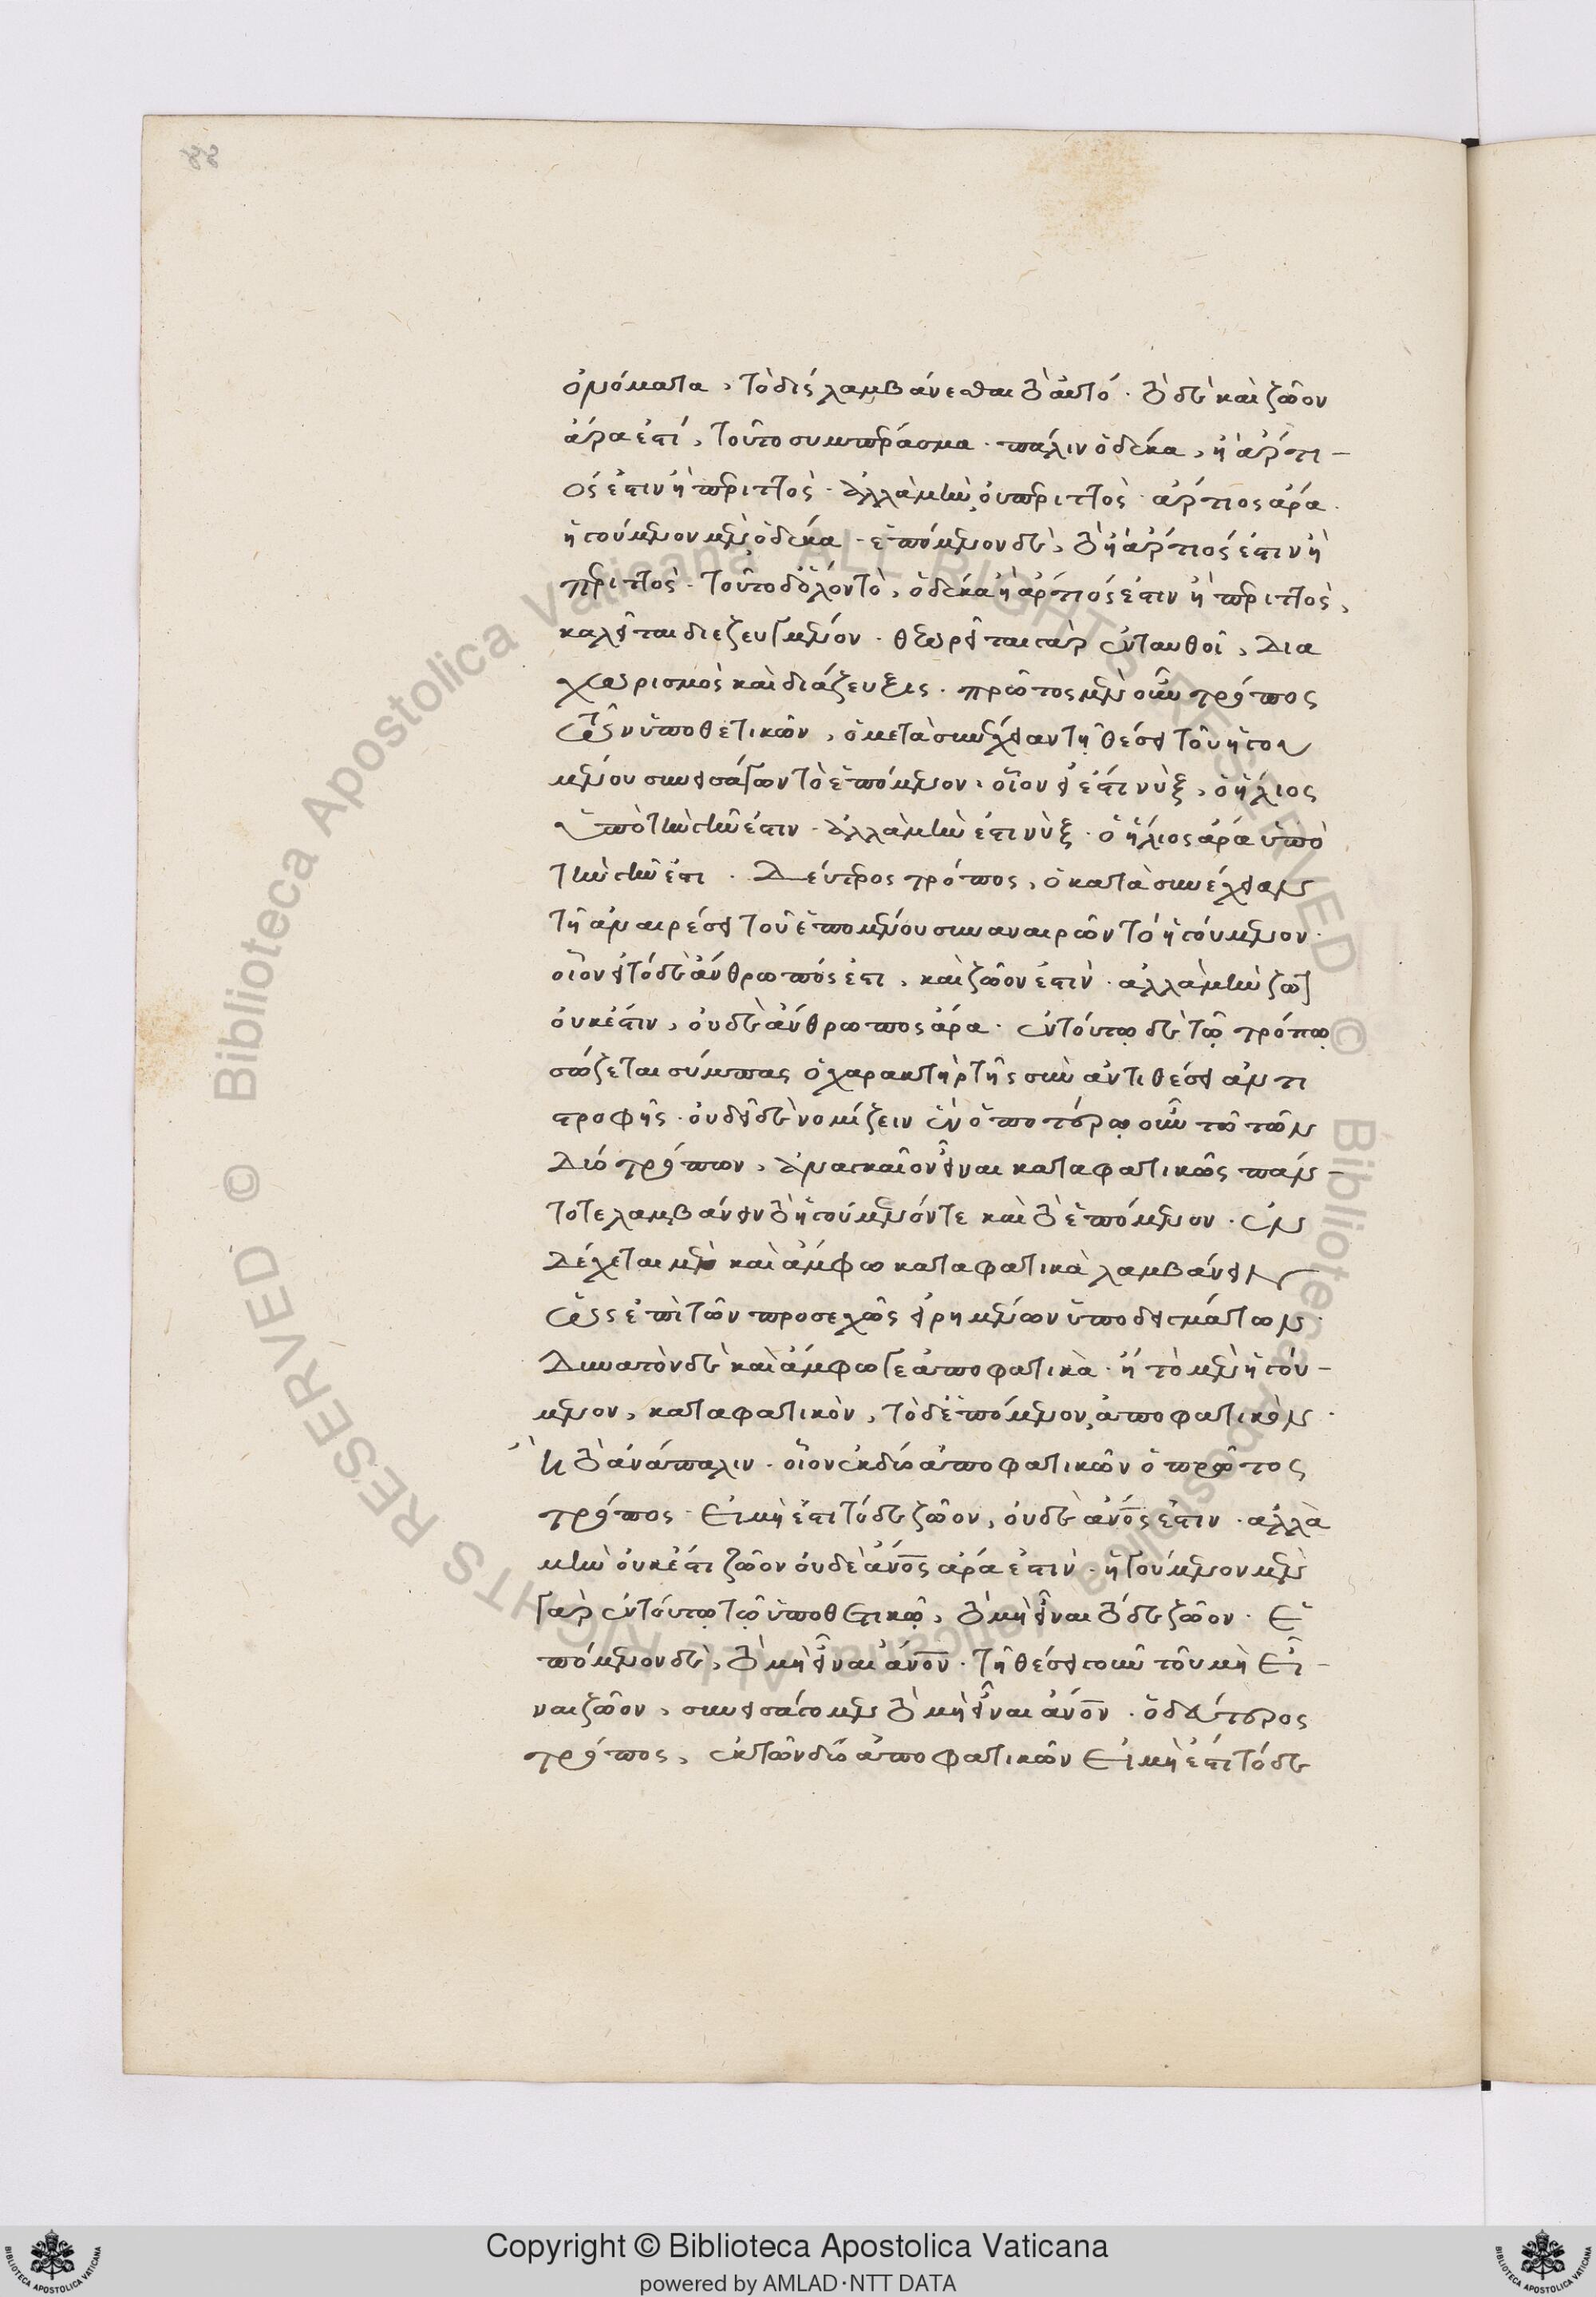 88
ὀνόματα, τὸ δὶς λαμβάνεσθαι τὸ αὐτό. τὸ δὲ καὶ ζῶον
ἄρα ἐστί, τοῦτο συμπέρασμα. πάλιν ὁ δέκα, ἢ ἄρτι-
ός ἐστιν ἢ περιττὸς. ἀλλὰ μὴν οὐ περιττὸς. ἄρτιος ἄρα.
ἡγούμενον μὲν ὁ δέκα. ἑπόμενον δὲ, τὸ ἢ ἄρτιός ἐστιν ἢ
περιττὸς. τοῦτο δ' ὅλον τὸ, ὁ δέκα ἢ ἄρτιός ἐστιν ἢ περιττὸς,
καλεῖται διεζευγμένον. θεωρεῖται γὰρ ἐνταυθοῖ, δια
χωρισμὸς καὶ διάζευξις. πρῶτος μὲν οὖν τρόπος
τῶν ὑποθετικῶν, ὁ μετὰ συνέχειαν τῇ θέσει τοῦ ἡγου
μένου συνεισάγων τὸ ἑπόμενον. οἷον εἰ ἔστι νὺξ, ὁ ἥλιος
ὑπὸ τὴν γῆν ἐστιν. ἀλλὰ μὴν ἔστι νὺξ. ὁ ἥλιος ἄρα ὑπὸ
τὴν γῆν ἐστι. Δεύτερος τρόπος, ὁ κατὰ συνέχειαν
τῇ ἀναιρέσει τοῦ ἑπομένου συναναιρῶν τὸ ἡγούμενον.
οἷον εἰ τόδε ἄνθρωπός ἐστι, καὶ ζῶον ἐστὶν. ἀλλὰ μὴν ζῶον
οὐκ ἔστιν, οὐδὲ ἄνθρωπος ἄρα. ἐν τούτῳ δὲ τῷ τρόπῳ
σώζεται σύμπας ὁ χαρακτὴρ τῆς σὺν ἀντιθέσει ἀντι
στροφῆς. οὐ δεῖ δὲ νομίζειν ἐν ὁποτέρῳ οὖν τῶν
δύο τρόπων, ἀναγκαῖον εἶναι καταφατικῶς πάν-
τοτε λαμβάνειν τὸ ἡγούμενόν τε καὶ τὸ ἑπόμενον. ἐν
δέχεται μὲν καὶ ἄμφω καταφατικὰ λαμβάνειν
ὡς ἐπὶ τῶν προσεχῶς εἰρημένων ὑποδειγμάτων.
Δυνατὸν δὲ καὶ ἄμφω γε ἀποφατικὰ. ἢ τὸ μὲν ἡγού-
μενον, καταφατικὸν, τὸ δ' ἑπόμενον, ἀποφατικὸν.
ἢ τὸ ἀνάπαλιν. οἷον ἐκ δύο ἀποφατικῶν ὁ πρῶτος
τρόπος. εἰ μὴ ἔστι τόδε ζῶον, οὐδὲ ἄνος ἐστιν. ἀλλὰ
μὴν οὐκ ἔστι ζῶον οὐδὲ ἄνος ἄρα ἐστὶν. ἡγούμενον μὲν
γὰρ ἐν τούτῳ τῷ ὑποθετικῷ, τὸ μὴ εἶναι τόδε ζῶον. ἑ
πόμενον δὲ, τὸ μὴ εἶναι ἄνον. τῇ θέσει γοῦν τοῦ μὴ εἶ-
ναι ζῶον, συνεισάγομεν τὸ μὴ εἶναι ἄνον. ὁ δεύτερος
τρόπος, ἐκ τῶν δύο ἀποφατικῶν εἰ μὴ ἔστι τόδε
Biblioteca Apostolica Vaticana ALL RIGHTS RESERVED © Biblioteca Apostolica Vaticana ALL RIGHTS RESERVED ©
Copyright © Biblioteca Apostolica Vaticana
powered by AMLAD·NTT DATA
BIBLIOTECA APOSTOLICA VATICANA
BIBLIOTECA APOSTOLICA VATICANA